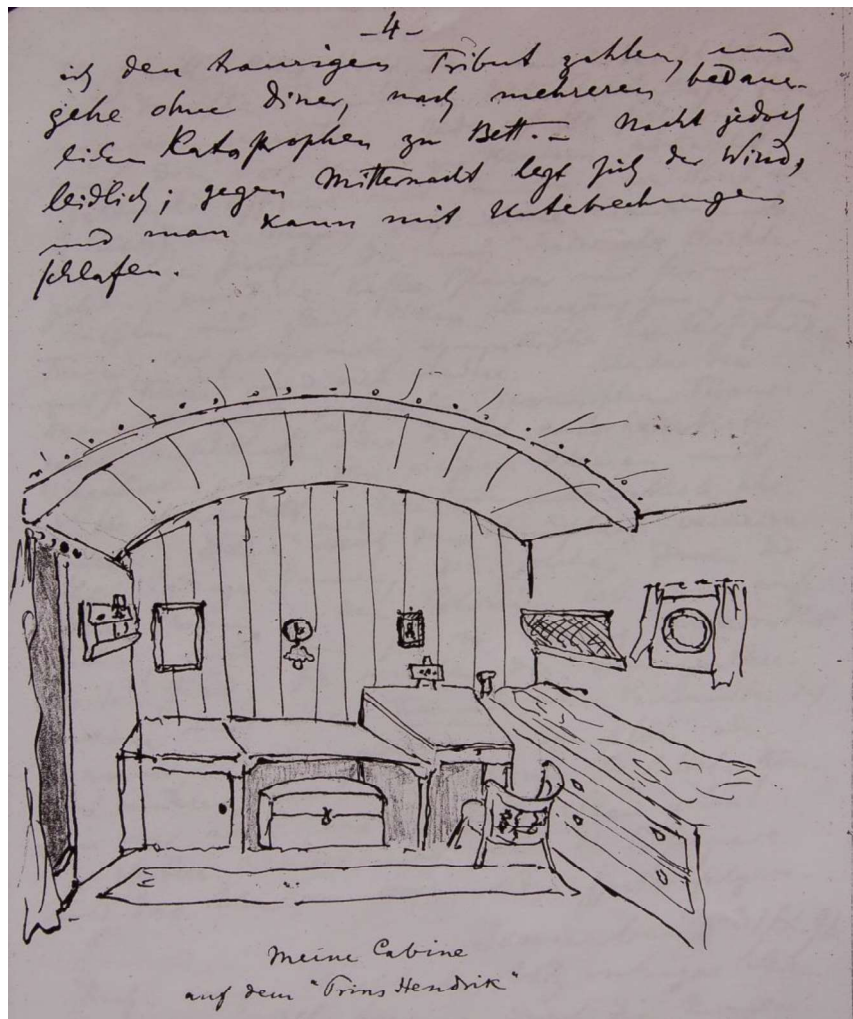 -4-
ich den traurigen Tribut zahlen, und
gehe ohne Diner, nach mehreren bedauer-
lichen Katastrophen zu Bett. – Nacht jedoch
leidlich; gegen Mitternacht legt sich der Wind,
und man kann mit Unterbrechungen
schlafen.
Meine Cabine
auf dem "Prins Hendrik"